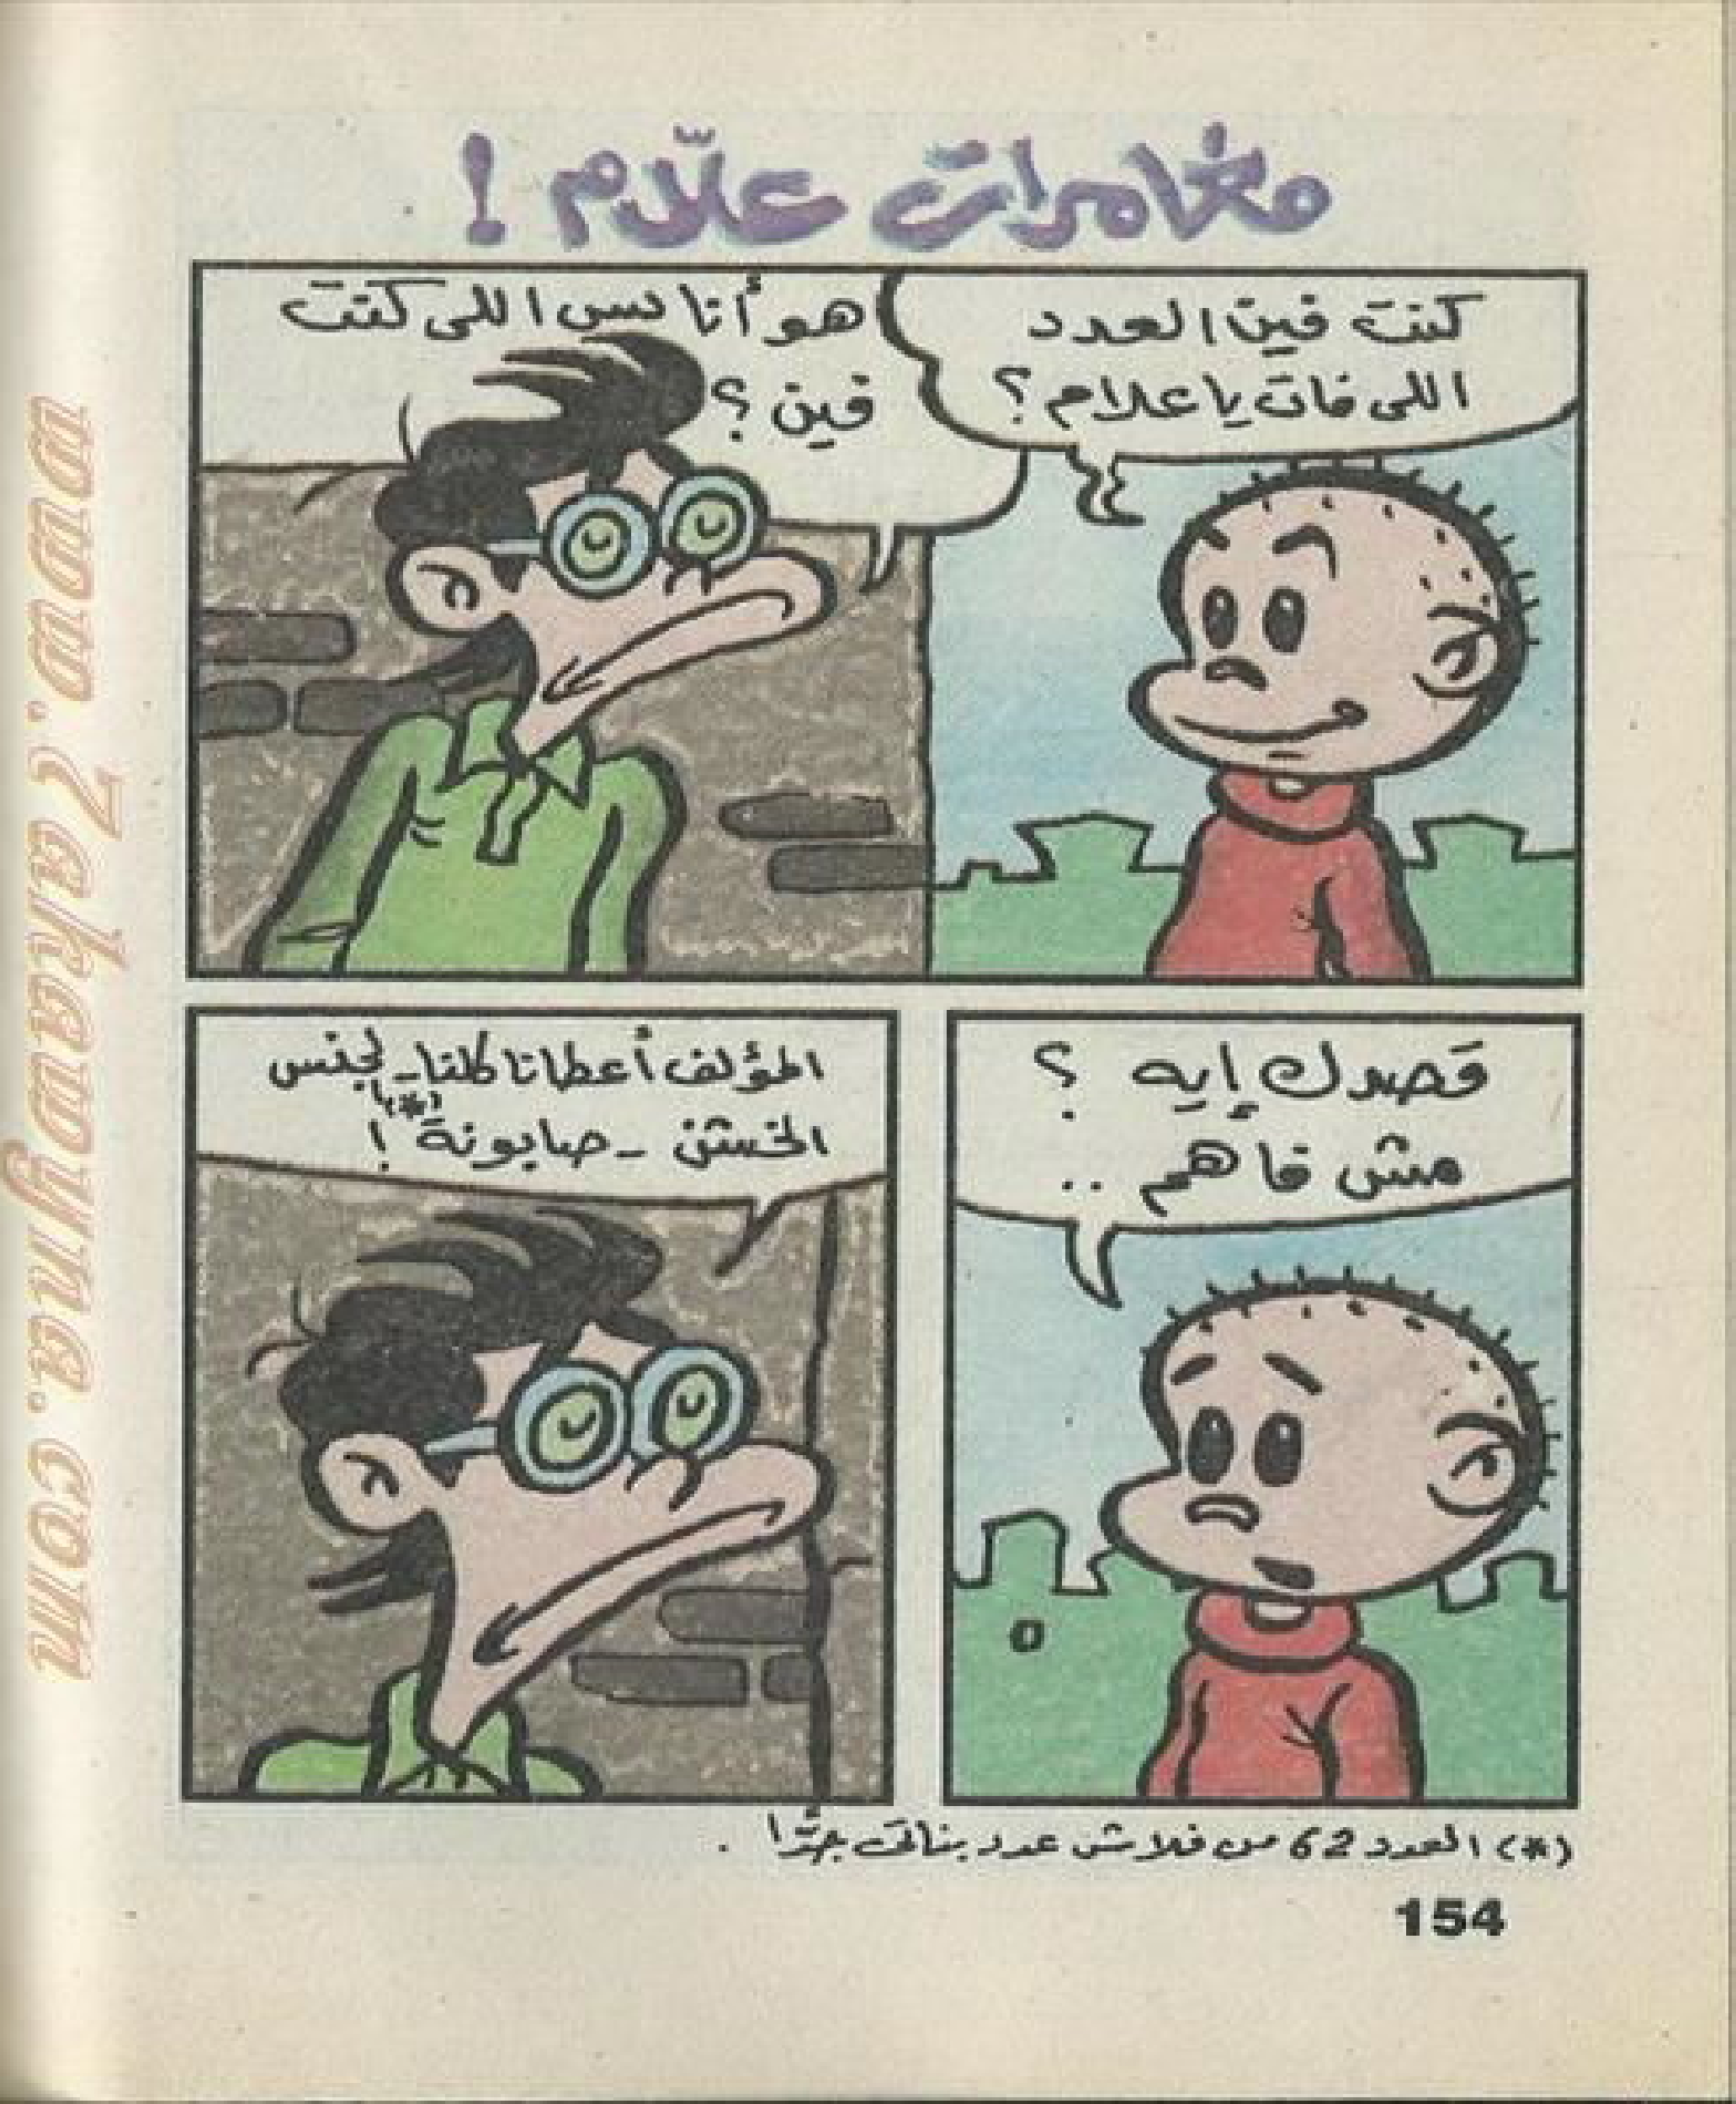 مغامرات علّام !
كنت فين العدد
اللى فات يا علام ؟
هو أنا بس اللى كنت
فين ؟
قصدك إيه ؟
مش فاهم ..
المؤلف أعطانا كلنا - لجنس
الخشن - صابونة (*) !
(*) العدد 62 من فلاش عدد بناتى جدًّا .
154
www.Zakaahyna.com